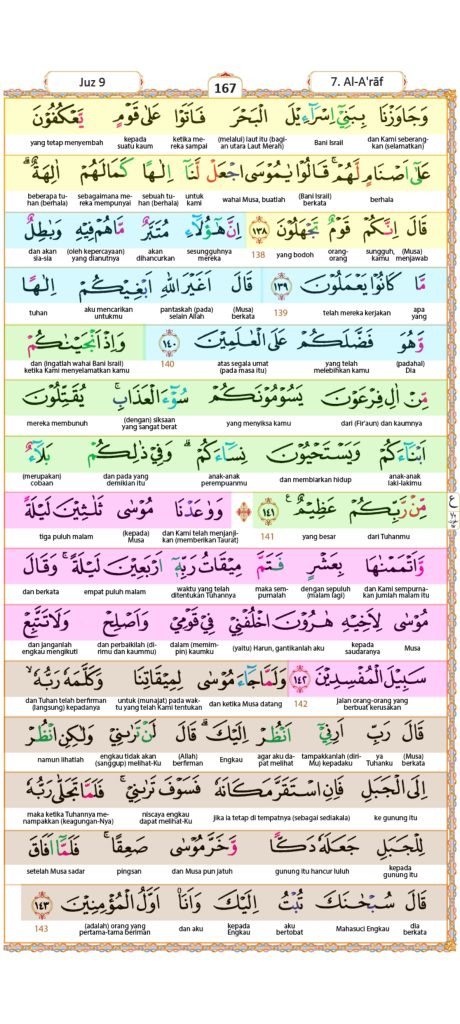 Juz 9
167
7. Al-A'rāf
وَجَاوَزْنَا بِبَنِيْٓ اِسْرَاۤءِيْلَ الْبَحْرَ فَاَتَوْا عَلٰى قَوْمٍ يَّعْكُفُوْنَ
dan Kami seberangkan (selamatkan) Bani Israil (melalui) laut itu (bagian utara Laut Merah) ketika mereka sampai kepada suatu kaum yang tetap menyembah
عَلٰٓى اَصْنَامٍ لَّهُمْ ۚ قَالُوْا يٰمُوْسَى اجْعَلْ لَّنَآ اِلٰهًا كَمَا لَهُمْ اٰلِهَةٌ ۗ
berhala (Bani Israil) berkata wahai Musa, buatlah untuk kami sebuah tuhan (berhala) sebagaimana mereka mempunyai beberapa tuhan (berhala)
قَالَ اِنَّكُمْ قَوْمٌ تَجْهَلُوْنَ ١٣٨ اِنَّ هٰٓؤُلَاۤءِ مُتَبَّرٌ مَّا هُمْ فِيْهِ وَبٰطِلٌ
(Musa) menjawab sungguh, kamu orang-orang yang bodoh 138 sesungguhnya mereka akan dihancurkan (oleh kepercayaan) yang dianutnya dan akan sia-sia
مَّا كَانُوْا يَعْمَلُوْنَ ١٣٩ قَالَ اَغَيْرَ اللّٰهِ اَبْغِيْكُمْ اِلٰهًا
apa yang telah mereka kerjakan 139 (Musa) berkata pantaskah (pada) selain Allah aku mencarikan untukmu tuhan
وَّهُوَ فَضَّلَكُمْ عَلَى الْعٰلَمِيْنَ ١٤٠ وَاِذْ اَنْجَيْنٰكُمْ
(padahal) Dia yang telah melebihkan kamu atas segala umat (pada masa itu) 140 dan (ingatlah wahai Bani Israil) ketika Kami menyelamatkan kamu
مِّنْ اٰلِ فِرْعَوْنَ يَسُوْمُوْنَكُمْ سُوْۤءَ الْعَذَابِ ۚ يُقَتِّلُوْنَ
dari (Fir'aun) dan kaumnya yang menyiksa kamu (dengan) siksaan yang sangat berat mereka membunuh
اَبْنَاۤءَكُمْ وَيَسْتَحْيُوْنَ نِسَاۤءَكُمْ ۗ وَفِيْ ذٰلِكُمْ بَلَاۤءٌ
anak-anak laki-lakimu dan membiarkan hidup anak-anak perempuanmu dan pada yang demikian itu (merupakan) cobaan
مِّنْ رَّبِّكُمْ عَظِيْمٌ ۚ ١٤١ وَوٰعَدْنَا مُوْسٰى ثَلٰثِيْنَ لَيْلَةً
dari Tuhanmu yang besar 141 dan Kami telah menjanjikan (memberikan Taurat) (kepada) Musa tiga puluh malam
وَّاَتْمَمْنٰهَا بِعَشْرٍ فَتَمَّ مِيْقَاتُ رَبِّهٖٓ اَرْبَعِيْنَ لَيْلَةً ۚ وَقَالَ
dan Kami sempurnakan jumlah malam itu dengan sepuluh (malam lagi) maka sempurnalah waktu yang telah ditentukan Tuhannya empat puluh malam dan berkata
مُوْسٰى لِاَخِيْهِ هٰرُوْنَ اخْلُفْنِيْ فِيْ قَوْمِيْ وَاَصْلِحْ وَلَا تَتَّبِعْ
Musa kepada saudaranya (yaitu) Harun, gantikanlah aku dalam (memimpin) kaumku dan perbaikilah (dirimu dan kaummu) dan janganlah engkau mengikuti
سَبِيْلَ الْمُفْسِدِيْنَ ١٤٢ وَلَمَّا جَاۤءَ مُوْسٰى لِمِيْقَاتِنَا وَكَلَّمَهٗ رَبُّهٗ ۙ
jalan orang-orang yang berbuat kerusakan 142 dan ketika Musa datang untuk (munajat) pada waktu yang telah Kami tentukan dan Tuhan telah berfirman (langsung) kepadanya
قَالَ رَبِّ اَرِنِيْٓ اَنْظُرْ اِلَيْكَ ۗ قَالَ لَنْ تَرٰىنِيْ وَلٰكِنِ انْظُرْ
(Musa) berkata ya Tuhanku tampakkanlah (diri-Mu) kepadaku agar aku dapat melihat Engkau (Allah) berfirman engkau tidak akan (sanggup) melihat-Ku namun lihatlah
اِلَى الْجَبَلِ فَاِنِ اسْتَقَرَّ مَكَانَهٗ فَسَوْفَ تَرٰىنِيْ ۚ فَلَمَّا تَجَلّٰى رَبُّهٗ
ke gunung itu jika ia tetap di tempatnya (sebagai sediakala) niscaya engkau dapat melihat-Ku maka ketika Tuhannya menampakkan (keagungan-Nya)
لِلْجَبَلِ جَعَلَهٗ دَكًّا وَّخَرَّ مُوْسٰى صَعِقًا ۚ فَلَمَّآ اَفَاقَ
kepada gunung itu gunung itu hancur luluh dan Musa pun jatuh pingsan setelah Musa sadar
قَالَ سُبْحٰنَكَ تُبْتُ اِلَيْكَ وَاَنَا۠ اَوَّلُ الْمُؤْمِنِيْنَ ١٤٣
dia berkata Mahasuci Engkau aku bertobat kepada Engkau dan aku (adalah) orang yang pertama-tama beriman 143